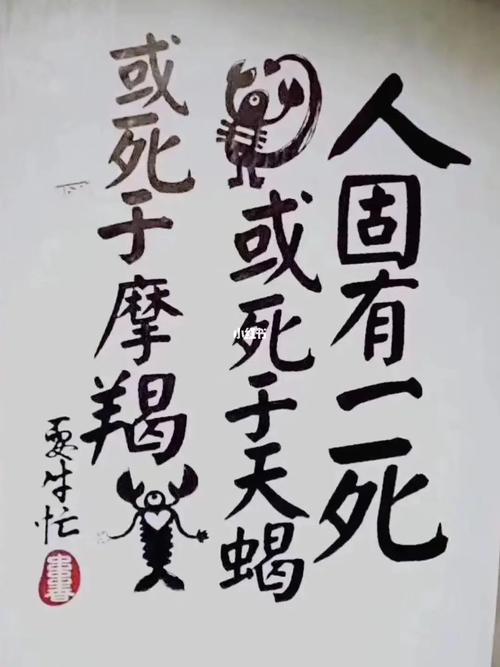 人固有一死
或死于天蝎
或死于摩羯
耍牛忙
小红书